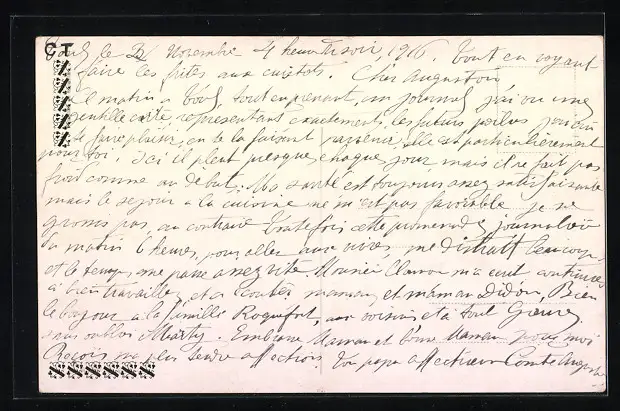 CT
Toul, le 22 Novembre 4 heures soir 1916. Tout en voyant
faire les frites aux cuistots. Cher Augustin
matin à Toul, tout en prenant un journal j'ai vu une
gentille carte représentant exactement les futurs poilus
te faire plaisir, en te la faisant parvenir, elle est particulièrement
pour toi. Ici il pleut presque chaque jour mais il ne fait pas
froid comme au début. Ma santé est toujours assez satisfaisante
mais le séjour à la cuisine ne m'est pas favorable je ne
grossis pas, au contraire toutefois cette promenade journalière
matin 6 heures, pour aller aux vivres, me distrait
et le temps me passe assez vite Monsieur m'a écrit continues
à bien travailler, et à écouter maman et maman Didon, Bien
le bonjour à la famille Roquefort, aux voisins et à tout
sans oublier Marty. Embrasse Maman et bonne Maman pour moi
Reçois ma plus tendre affection. Ton papa affectueux Comte Auguste